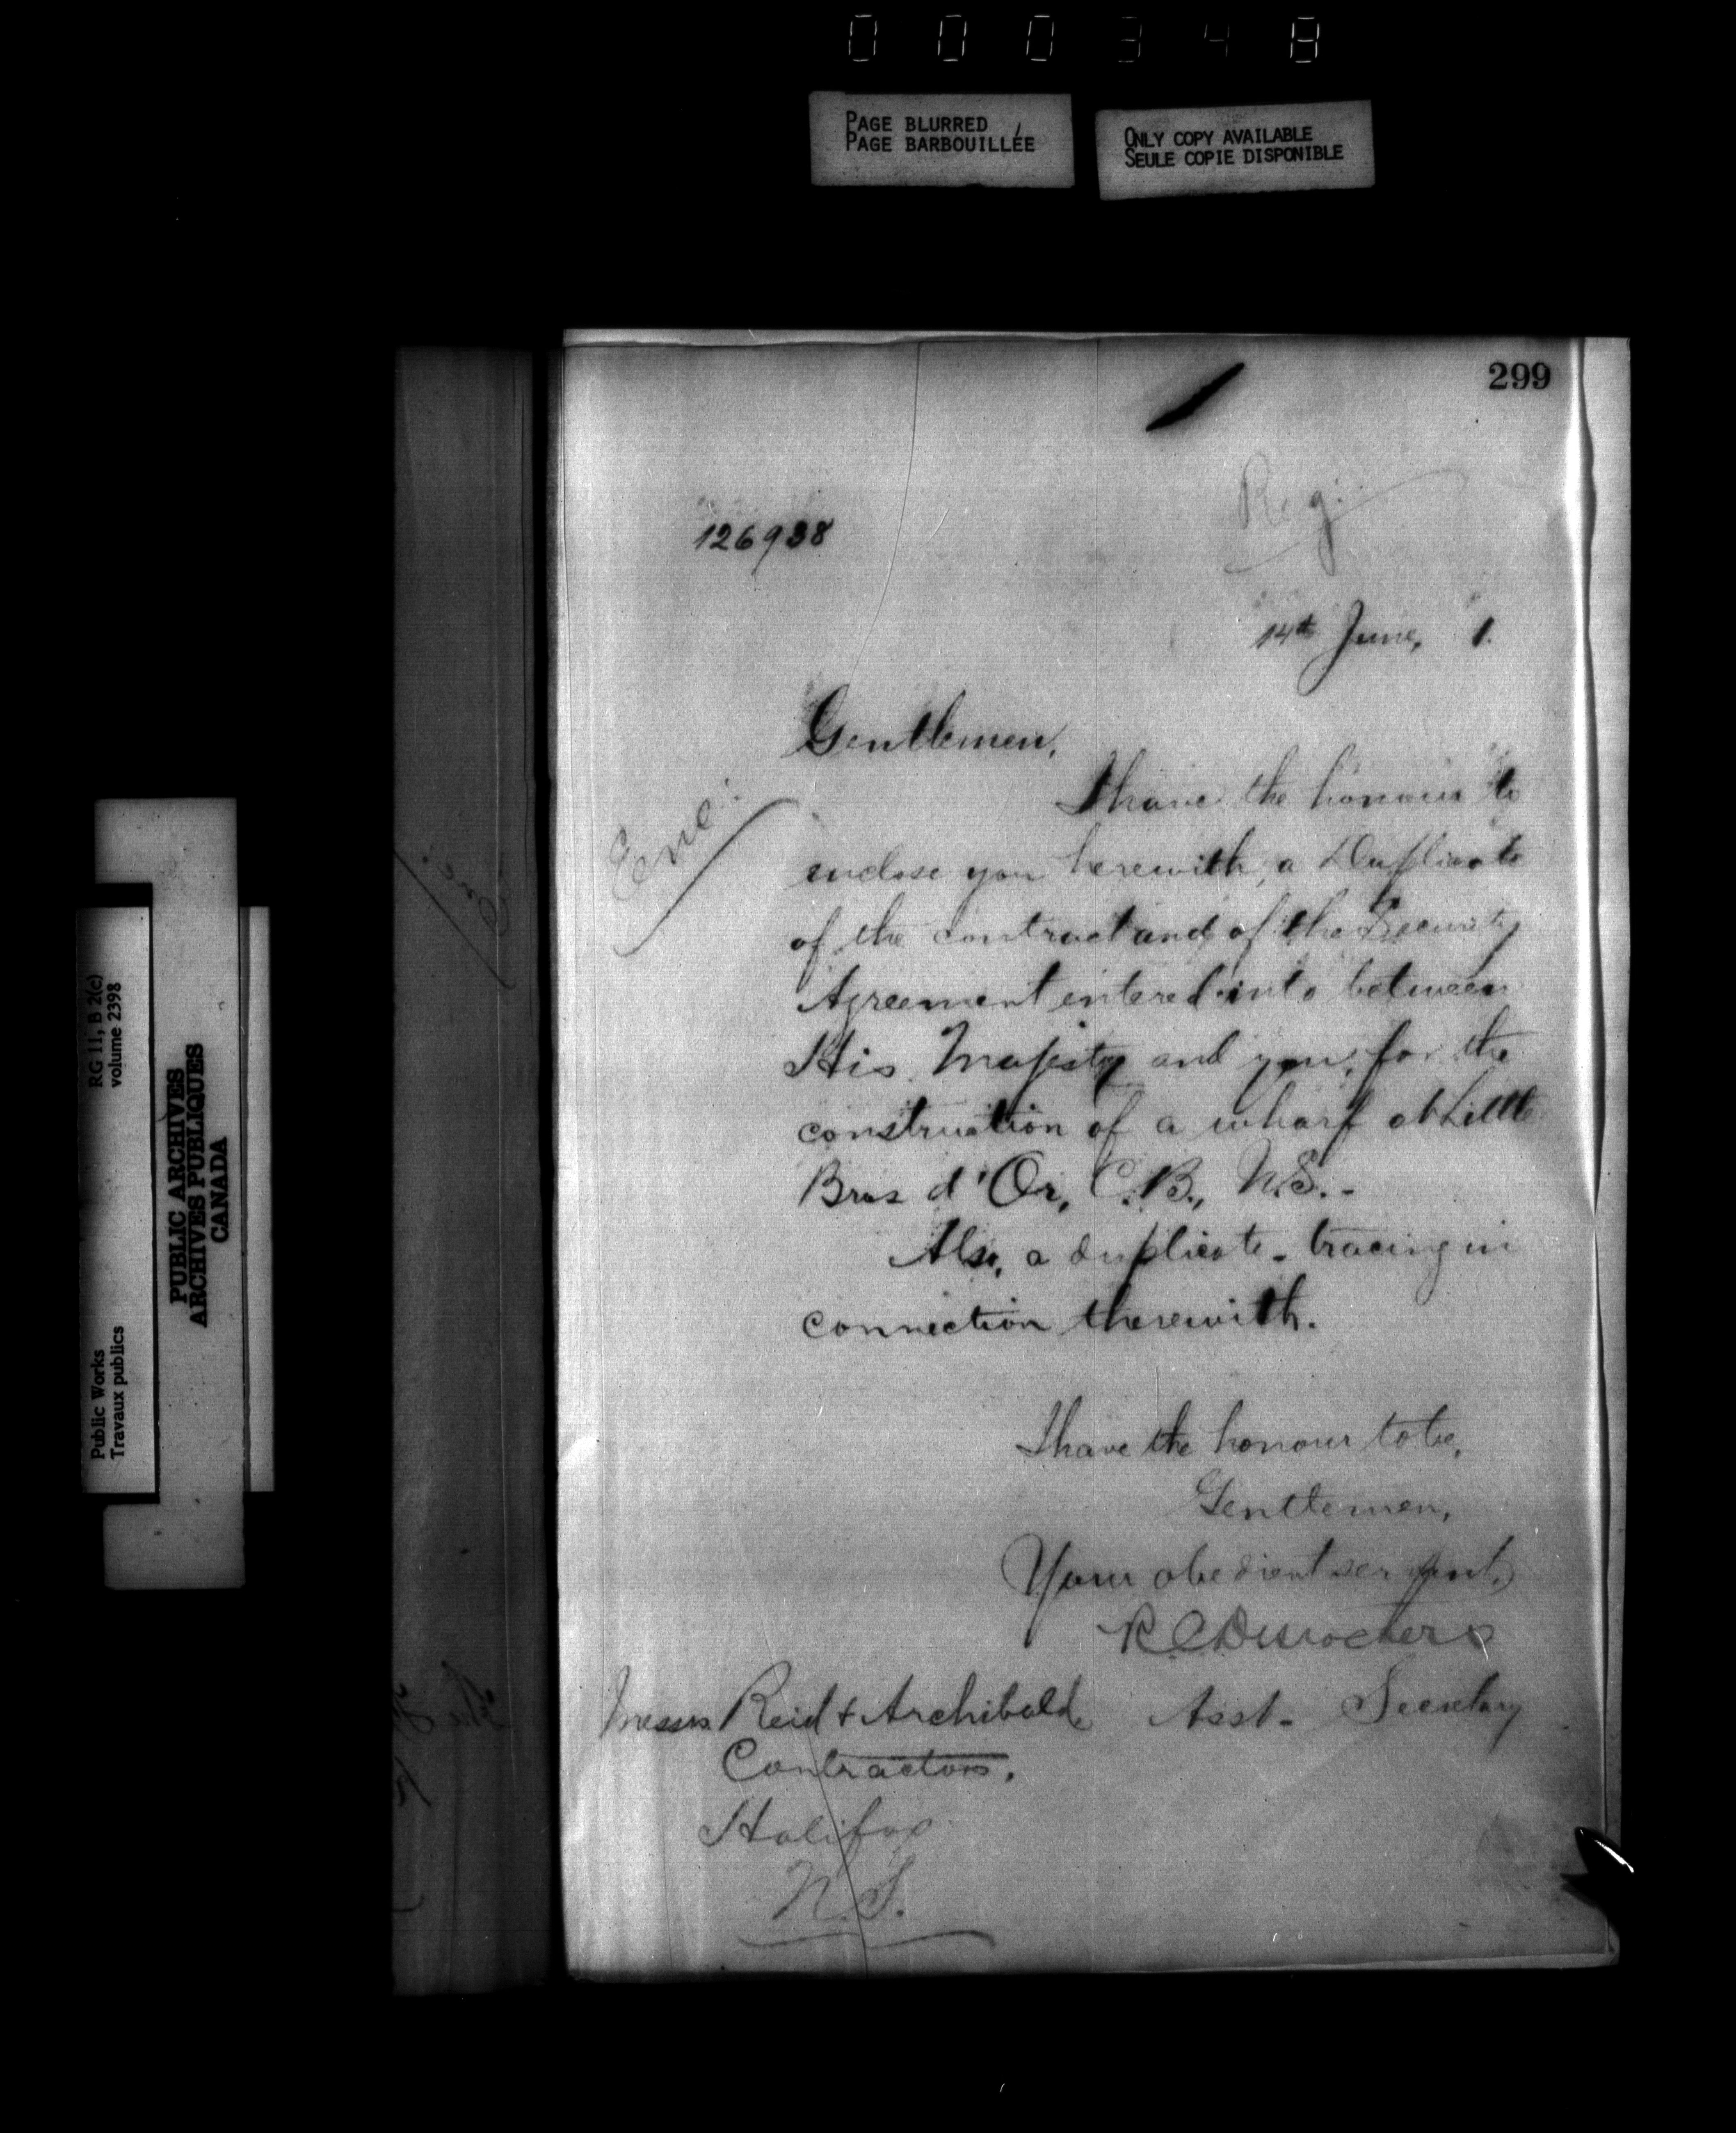 0 0 0 3 4 8
PAGE BLURRED
PAGE BARBOUILLÉE
ONLY COPY AVAILABLE
SEULE COPIE DISPONIBLE
RG 11, B 2(c)
volume 2398
PUBLIC ARCHIVES
ARCHIVES PUBLIQUES
CANADA
Public Works
Travaux publics
299
Reg:
126938
14th June, 1.
Gentlemen,
Enc:
I have the honour to
enclose you herewith, a Duplicate
of the contract and of the Security
Agreement entered into between
His Majesty and you, for the
construction of a wharf at Little
Bras d'Or, C.B., N.S. -
Also, a duplicate - tracing in
connection therewith.
I have the honour to be,
Gentlemen,
Your obedient servant,
R C Desrochers
Asst - Secretary
Messrs Reid & Archibald,
Contractors,
Halifax
N.S.